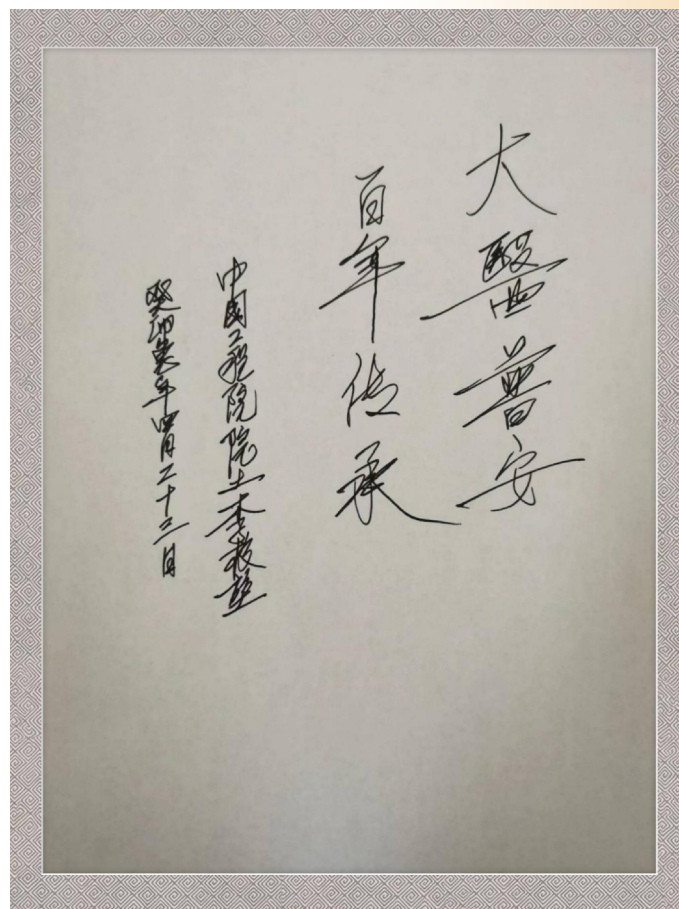 大醫普安
百年传承
中國工程院院士李校堃
癸卯兔年四月二十三日